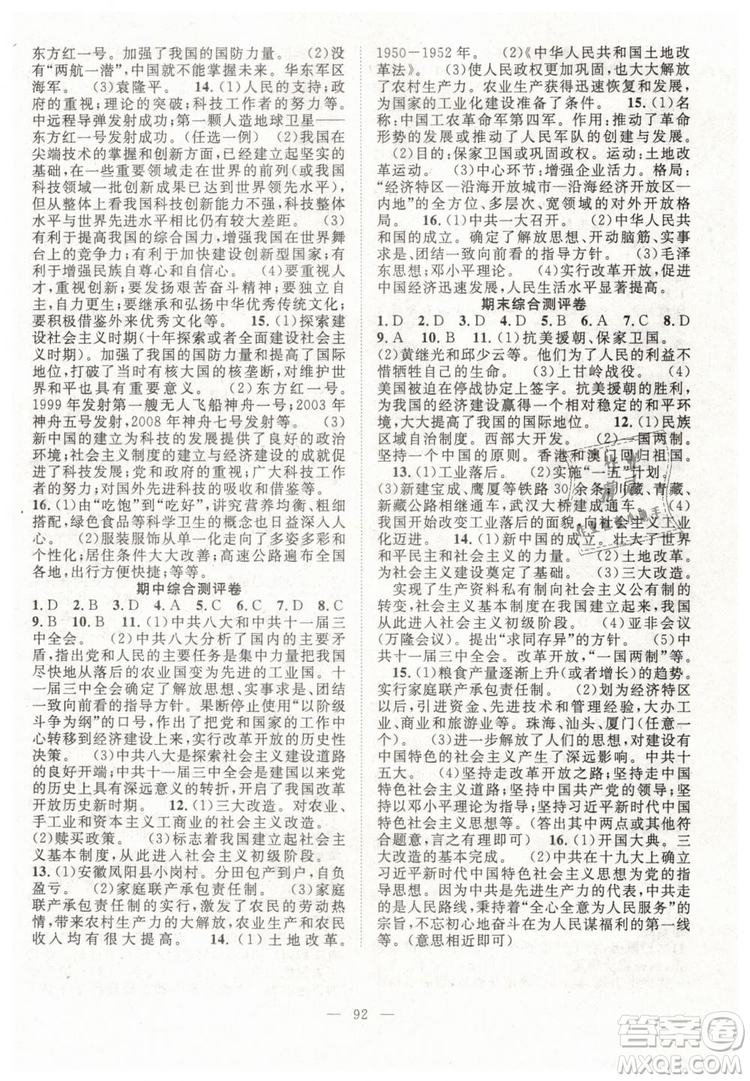 东方红一号。加强了我国的国防力量。　(2)没
有“两航一潜”,中国就不能掌握未来。华东军区
海军。　(3)袁隆平。　14.(1)人民的支持;政
府的重视;理论的突破;科技工作者的努力等。
中远程导弹发射成功;第一颗人造地球卫星——
东方红一号发射成功。(任选一例)　(2)我国在
尖端技术的掌握和创新方面,已经建立起坚实基
础,在一些重要领域走在世界的前列(或者我国
科技领域一些创新成果已达到世界领先水平),
但总体上我国科技创新能力不强,与世界科技
发展先进水平相比有较大差距。　(3)
有利于提高我国的综合国力,增强我国在世界舞
台上的竞争力;有利于加快建设创新型国家;有
利于增强民族自尊心和自信心。　(4)要重视人
才;要重视科技;发扬艰苦奋斗精神;对待传统文
化,要继承和弘扬中华优秀传统文化,努力汲取
世界优秀文化等。　15.(1)探索建设
社会主义时期(十年探索或者全面建设社会主义
时期)。加强了我国的国防力量和提高了国际
地位,打破了核大国的核垄断,对维护世界和平
也具有重大意义。　(2)东方红一号。
1999年发射第一艘无人飞船神舟一号。2003年
神舟五号发射。2008年神舟七号发射等。　(3)
新中国的建立为科技的发展提供了良好的政治环
境;社会主义制度的建立与经济建设的成就促进
了科技的进步;党和政府的重视;广大科技工作
者的努力;对国外先进科技的吸收与引进等。
16.(1)由“吃饱”到“吃好”,讲究营养均衡、粗细搭
配,绿色食品等科学卫生的概念也日益深入人
心。　(2)服装服饰从单一化走向多姿多彩、个
性化;居住条件大大改善;高速公路遍布全国各
地;等等。
期中综合测评卷
1.D　2.B　3.D　4.D　5.A　6.A　7.B　8.C
9.B　10.B　11.(1)中共八大和中共十一届三
中全会。　(2)中共八大分析了国内的主要矛
盾,指出党和人民的主要任务是集中力量尽快地
把我国从落后的农业国变为先进的工业国。十
一届三中全会确定了解放思想、开动脑筋、实事
求是、团结一致向前看的指导方针。果断停止使用“以阶级
斗争为纲”的口号,作出把党和国家的工作中
心转移到经济建设上来,实行改革开放的历史性
决策。　(3)中共八大是探索社会主义建设道路
的良好开端;中共十一届三中全会是建国以来党的历史上
具有深远意义的转折,开启了我国改革
开放历史新时期。　12.(1)三大改造。对农业、
手工业和资本主义工商业的社会主义改造。
(2)赎买政策。　(3)标志着我国初步建立起社会主义
的基本制度,从此进入社会主义初级阶段。
13.(1)安徽凤阳县小岗村。分田包产到户,自负
盈亏。　(2)家庭联产承包责任制。　(3)家庭
联产承包责任制的实行,激发了农民的劳动热
情,带来农村生产力的大解放,农业生产和农民
收入均有很大提高。　14.(1)土地改革。
1950－1952年。　(2)《中华人民共和国土地改
革法》。　(3)使人民政权更加巩固,也大大解放了
农村生产力。农业生产获得迅速恢复和发展,为
国家的工业化建设准备了条件。　15.(1)名
称:中国工农革命军第四军。作用:推动了革命
形势的发展,推动了人民军队的创建与发展。
(2)目的:保家卫国和保卫和平。运动:土地改
革运动。　(3)中心环节:增强企业活力。格局:
“经济特区—沿海开放城市—沿海经济开放区—
内地”的全方位、多层次、宽领域的对外开放格
局。　16.(1)中共一大召开。　(2)中华人民共
和国的成立。　(2)解放思想、开动脑筋、实事
求是、团结一致向前看的指导方针。　(3)毛泽
东思想;邓小平理论。　(4)坚持改革开放,促进
中国经济迅速发展,人民生活水平显著提高。
期末综合测评卷
1.D　2.D　3.A　4.D　5.B　6.A　7.C　8.D
9.A　10.B　11.(1)抗美援朝、保家卫国。
(2)黄继光和邱少云等。他们为了人民的利益不
惜牺牲自己的生命。　(3)上甘岭战役。　(4)
美国被迫在停战协定上签字。抗美援朝的胜利,
为我国的经济建设赢得了一个相对稳定的和平环
境,大大提高了我国的国际地位。　12.(1)民族
区域自治制度。西部大开发。　(2)一国两制。
坚持一个中国的原则。香港和澳门回归祖国。
13.(1)工业落后。　(2)实施“一五”计划。
(3)新建宝成、鹰厦等铁路30余条;川藏、青藏、
新藏公路相继通车,武汉长江大桥建成通车。
化迈进。　14.(1)新中国的成立。壮大了世界
和平民主和社会主义的力量。　(2)土地改革。
为社会主义制度的确立奠定了基础。　(3)三大改造。
实现了生产资料私有制向社会主义公有制的
转变,社会主义基本制度在我国初步建立,我国
从此进入社会主义初级阶段。　(4)亚非会议
(万隆会议)。提出“求同存异”的方针。　(5)中
共十一届三中全会。改革开放,“一国两制”等。
15.(1)粮食产量逐渐上升(或者增长)的趋势。
实行家庭联产承包责任制。　(2)划为经济特区
以后,引进资金、先进技术和管理经验,大办工
业、商业和旅游业等。珠海、汕头、厦门(任意一
个)。　(3)进一步解放了人们的思想,对中国改
革开放和社会主义现代化建设事业产生了深远影响。　(4)中共十
五大。　(5)坚持走改革开放的道路;坚持走中国
特色社会主义道路;坚持中国共产党的领导;坚
持邓小平理论的指导;坚持习近平新时代中国
特色社会主义思想等。(答出其中两点或其他符
合题意,言之有理即可)　16.(1)开国大典。三
大改造的基本完成。　(2)中共在十九大上将习
近平新时代中国特色社会主义思想确立为党的
指导思想。　(3)中国共产党一直坚持从群众中来到群众中去
的人民路线,秉持着“全心全意为人民服务”的
宗旨,不忘初心地奋斗在为人民谋福利的第一线
等。(意思相近即可)
— 92 —
答案圈
MXQE.COM